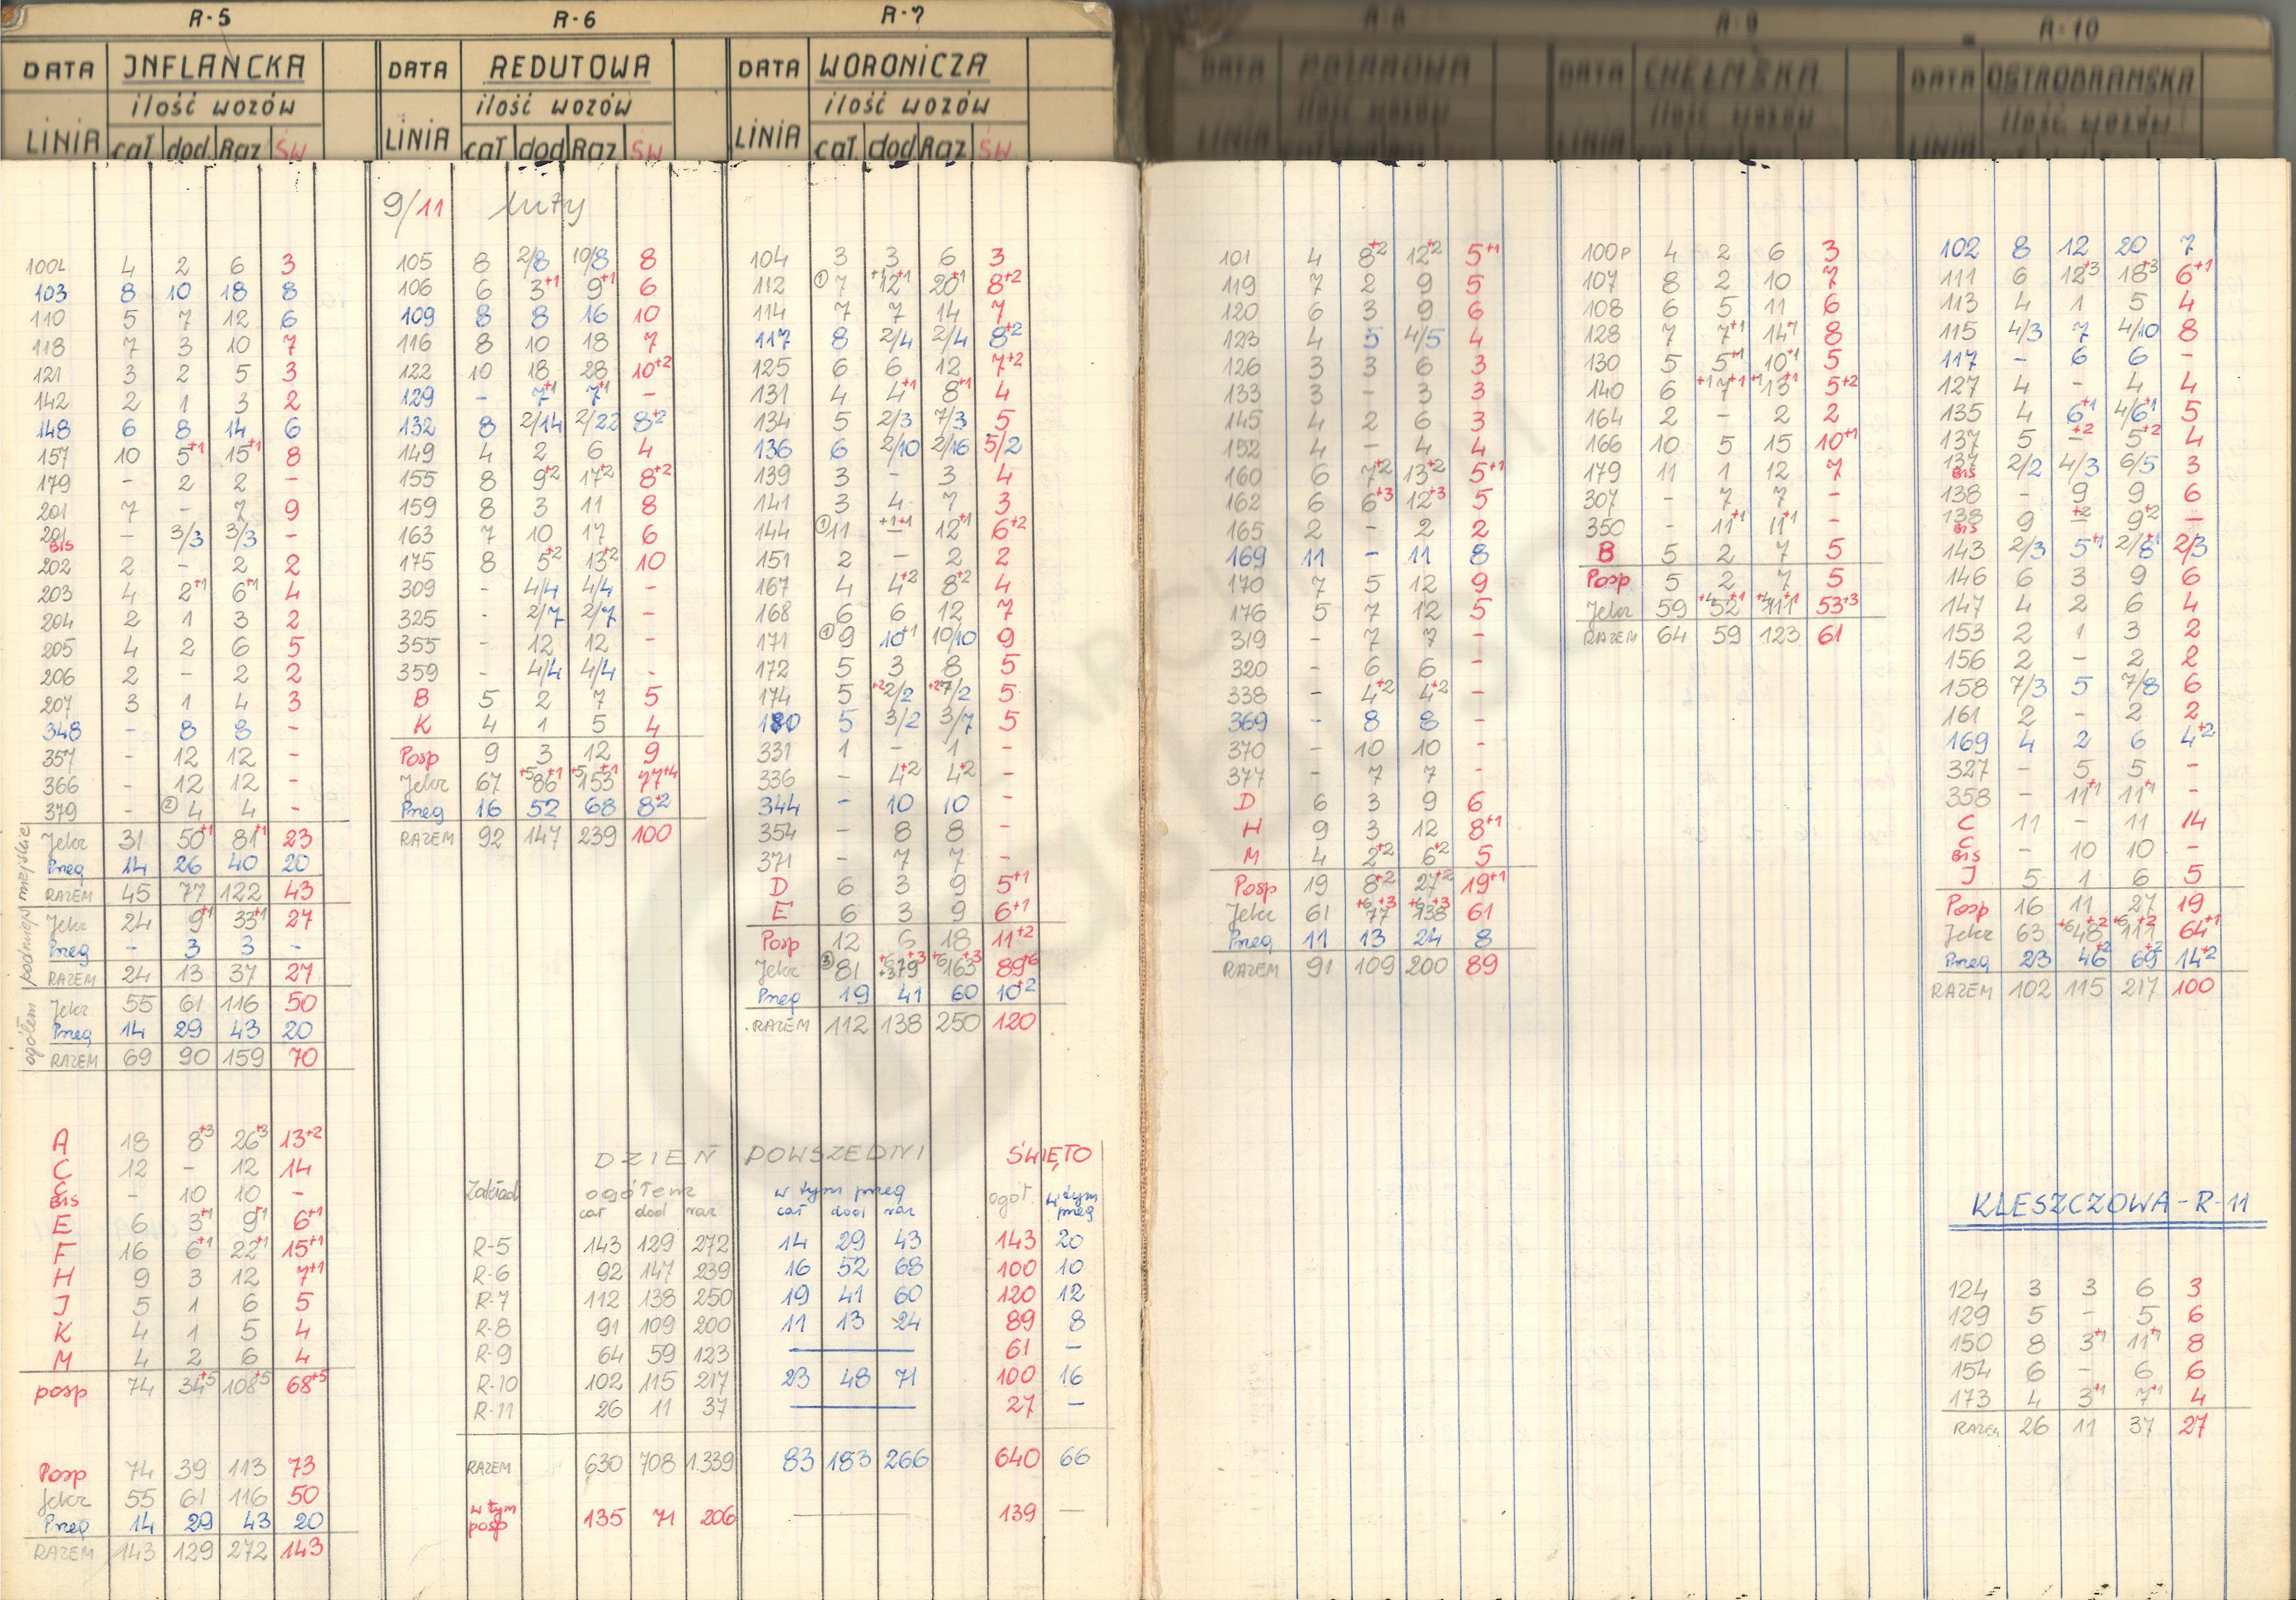 R-5
INFLANCKA
DATA
ilość wozów
LINIA cał dod Raz ŚW
100L 4 2 6 3
103 8 10 18 8
110 5 7 12 6
118 7 3 10 7
121 3 2 5 3
142 2 1 3 2
148 6 8 14 6
157 10 5+1 15+1 8
179 - 2 2 -
201 7 - 7 9
201 BIS - 3/3 3/3 -
202 2 - 2 2
203 4 2+1 6+1 4
204 2 1 3 2
205 4 2 6 5
206 2 - 2 2
207 3 1 4 3
348 - 8 8 -
357 - 12 12 -
366 - 12 12 -
379 - ② 4 4 -
miejskie
Jelcz 31 50+1 81+1 23
Preg 14 26 40 20
RAZEM 45 77 122 43
podmiej
Jelcz 24 9+1 33+1 27
Preg - 3 3 -
RAZEM 24 13 37 27
ogółem
Jelcz 55 61 116 50
Preg 14 29 43 20
RAZEM 69 90 159 70
A 18 8+3 26+3 13+2
C 12 - 12 14
C BIS - 10 10 -
E 6 3+1 9+1 6+1
F 16 6+1 22+1 15+1
H 9 3 12 7+1
J 5 1 6 5
K 4 1 5 4
M 4 2 6 4
posp 74 34+5 108+5 68+5
Posp 74 39 113 73
Jelcz 55 61 116 50
Preg 14 29 43 20
RAZEM 143 129 272 143
R-6
DATA REDUTOWA
ilość wozów
LINIA cał dod Raz ŚW
9/11 luty
105 8 2/8 10/8 8
106 6 3+1 9+1 6
109 8 8 16 10
116 8 10 18 7
122 10 18 28 10+2
129 - 7+1 7+1 -
132 8 2/14 2/22 8+2
149 4 2 6 4
155 8 9+2 17+2 8+2
159 8 3 11 8
163 7 10 17 6
175 8 5+2 13+2 10
309 - 4/4 4/4 -
325 - 2/7 2/7 -
355 - 12 12 -
359 - 4/4 4/4 -
B 5 2 7 5
K 4 1 5 4
Posp 9 3 12 9
Jelcz 67 +5 86+1 +5 153+1 77+4
Preg 16 52 68 8+2
RAZEM 92 147 239 100
R-7
DATA WORONICZA
ilość wozów
LINIA cał dod Raz ŚW
104 3 3 6 3
112 ① 7 +1 12+1 20+1 8+2
114 7 7 14 7
117 8 2/4 2/4 8+2
125 6 6 12 7+2
131 4 4+1 8+1 4
134 5 2/3 7/3 5
136 6 2/10 2/16 5/2
139 3 - 3 4
141 3 4 7 3
144 ① 11 +1+1 - 12+1 6+2
151 2 - 2 2
167 4 4+2 8+2 4
168 6 6 12 7
171 ① 9 10+1 10/10 9
172 5 3 8 5
174 5 +2 2/2 +2 7/2 5
180 5 3/2 3/7 5
331 1 - 1 -
336 - 4+2 4+2 -
344 - 10 10 -
354 - 8 8 -
371 - 7 7 -
D 6 3 9 5+1
E 6 3 9 6+1
Posp 12 6 18 11+2
Jelcz ③ 81 +6 +3 79+3 +6 163+3 89+6
Preg 19 41 60 10+2
RAZEM 112 138 250 120
DZIEŃ POWSZEDNI ŚWIĘTO
Zakład ogółem w tym preg ogół. w tym preg
cał dod raz cał dod raz
R-5 143 129 272 14 29 43 143 20
R-6 92 147 239 16 52 68 100 10
R-7 112 138 250 19 41 60 120 12
R-8 91 109 200 11 13 24 89 8
R-9 64 59 123 — 61 -
R-10 102 115 217 23 48 71 100 16
R-11 26 11 37 — 27 -
RAZEM 630 708 1.339 83 183 266 640 66
w tym posp 135 71 206 — 139 —
R-8
DATA
ilość wozów
LINIA
101 4 8+2 12+2 5+1
119 7 2 9 5
120 6 3 9 6
123 4 5 4/5 4
126 3 3 6 3
133 3 - 3 3
145 4 2 6 3
152 4 - 4 4
160 6 7+2 13+2 5+1
162 6 6+3 12+3 5
165 2 - 2 2
169 11 - 11 8
170 7 5 12 9
176 5 7 12 5
319 - 7 7 -
320 - 6 6 -
338 - 4+2 4+2 -
369 - 8 8 -
370 - 10 10 -
377 - 7 7 -
D 6 3 9 6
H 9 3 12 8+1
M 4 2+2 6+2 5
Posp 19 8+2 27+2 19+1
Jelcz 61 +6 77+3 +6 138+3 61
Preg 11 13 24 8
RAZEM 91 109 200 89
R-9
DATA CHEŁMSKA
ilość wozów
LINIA
100P 4 2 6 3
107 8 2 10 7
108 6 5 11 6
128 7 7+1 14+1 8
130 5 5+1 10+1 5
140 6 +1 7+1 +1 13+1 5+2
164 2 - 2 2
166 10 5 15 10+1
179 11 1 12 7
307 - 7 7 -
350 - 11+1 11+1 -
B 5 2 7 5
Posp 5 2 7 5
Jelcz 59 +4 52+1 +4 111+1 53+3
RAZEM 64 59 123 61
R-10
DATA OSTROBRAMSKA
ilość wozów
LINIA
102 8 12 20 7
111 6 12+3 18+3 6+1
113 4 1 5 4
115 4/3 7 4/10 8
117 - 6 6 -
127 4 - 4 4
135 4 6+1 4/6+1 5
137 5 +2 - 5+2 4
137 BIS 2/2 4/3 6/5 3
138 - 9 9 6
138 BIS 9 +2 - 9+2 -
143 2/3 5+1 2/8+1 2/3
146 6 3 9 6
147 4 2 6 4
153 2 1 3 2
156 2 - 2 2
158 7/3 5 7/8 6
161 2 - 2 2
169 4 2 6 4+2
327 - 5 5 -
358 - 11+1 11+1 -
C 11 - 11 14
C BIS - 10 10 -
J 5 1 6 5
Posp 16 11 27 19
Jelcz 63 +6 48+2 +6 111+2 64+1
Preg 23 46+2 69+2 14+2
RAZEM 102 115 217 100
KLESZCZOWA - R-11
124 3 3 6 3
129 5 - 5 6
150 8 3+1 11+1 8
154 6 - 6 6
173 4 3+1 7+1 4
RAZEM 26 11 37 27